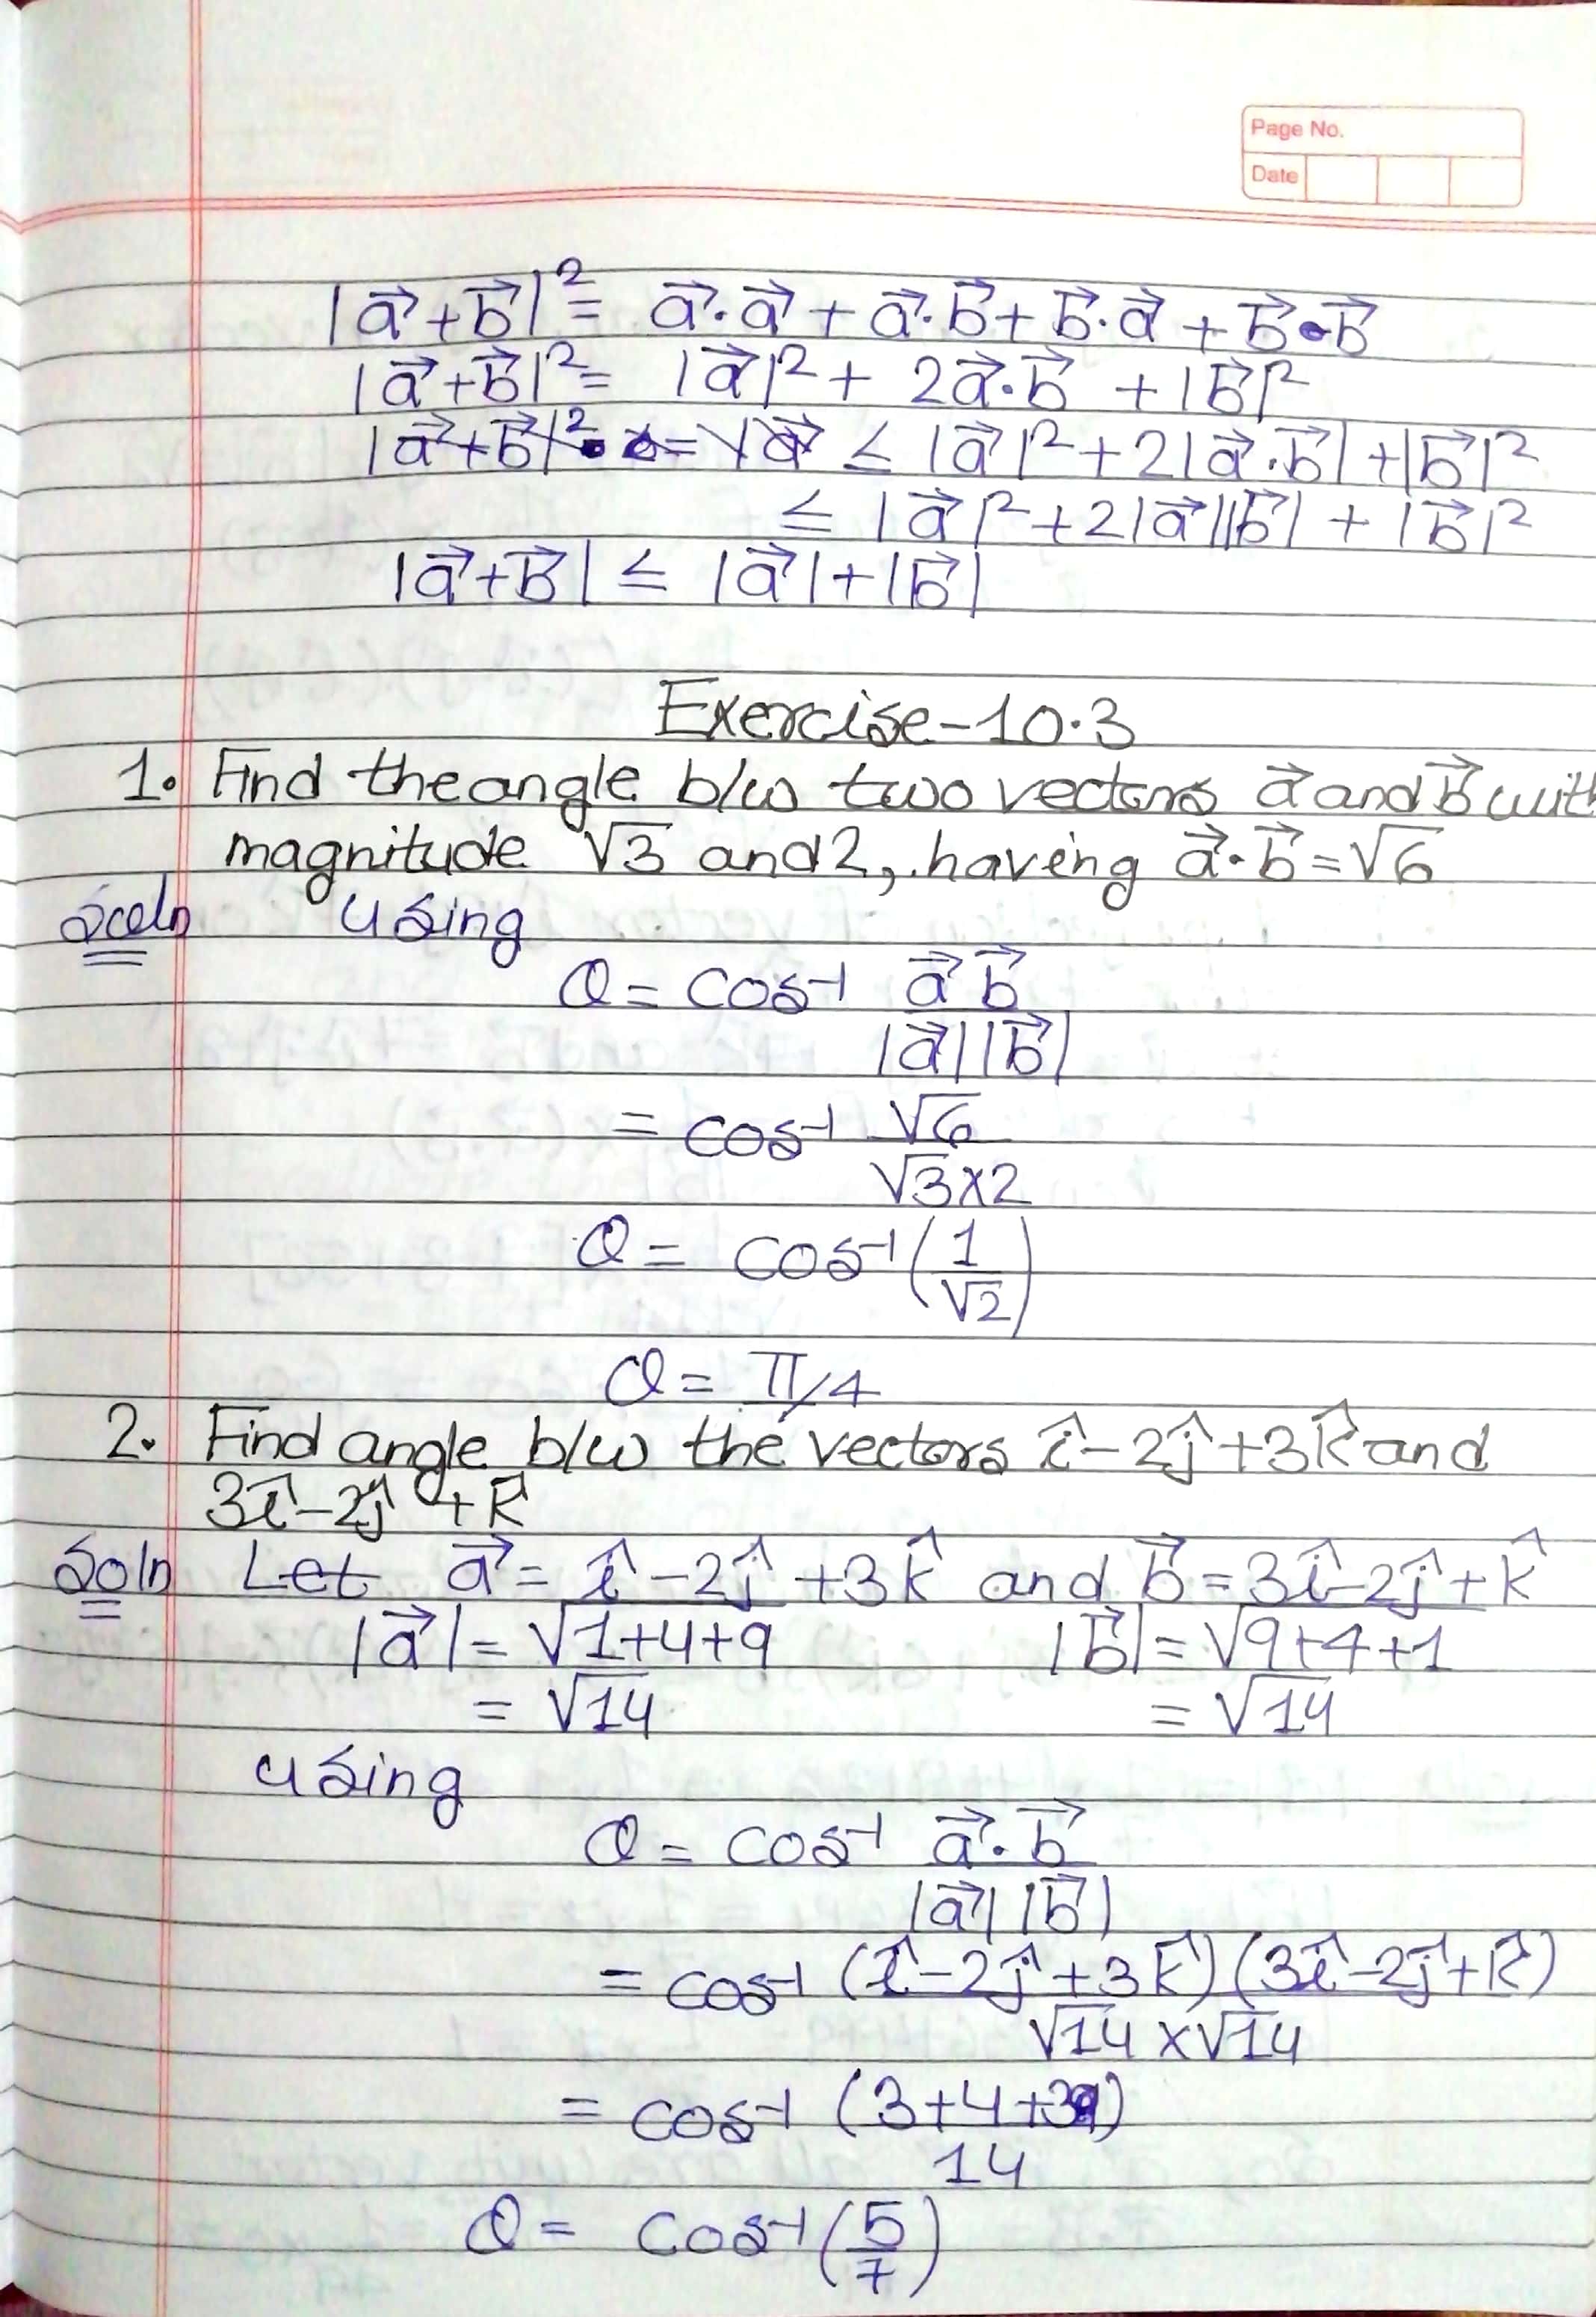 Page No.
Date
|a⃗+b⃗|² = a⃗·a⃗ + a⃗·b⃗ + b⃗·a⃗ + b⃗·b⃗
|a⃗+b⃗|² = |a⃗|² + 2a⃗·b⃗ + |b⃗|²
|a⃗+b⃗|² ≤ |a⃗|² + 2|a⃗·b⃗| + |b⃗|²
≤ |a⃗|² + 2|a⃗||b⃗| + |b⃗|²
|a⃗+b⃗| ≤ |a⃗|+|b⃗|
Exercise-10.3
1. Find the angle b/w two vectors a⃗ and b⃗ with
magnitude √3 and 2, having a⃗·b⃗ = √6
Soln using
θ = cos⁻¹ a⃗ b⃗
|a⃗||b⃗|
= cos⁻¹ √6
√3×2
θ = cos⁻¹ (1
√2)
θ = π/4
2. Find angle b/w the vectors î-2ĵ+3k̂ and
3î-2ĵ+k̂
Soln Let a⃗ = î-2ĵ+3k̂ and b⃗ = 3î-2ĵ+k̂
|a⃗| = √1+4+9 |b⃗| = √9+4+1
= √14 = √14
using
θ = cos⁻¹ a⃗·b⃗
|a⃗||b⃗|
= cos⁻¹ (î-2ĵ+3k̂)(3î-2ĵ+k̂)
√14 × √14
= cos⁻¹ (3+4+3)
14
θ = cos⁻¹ (5
7)